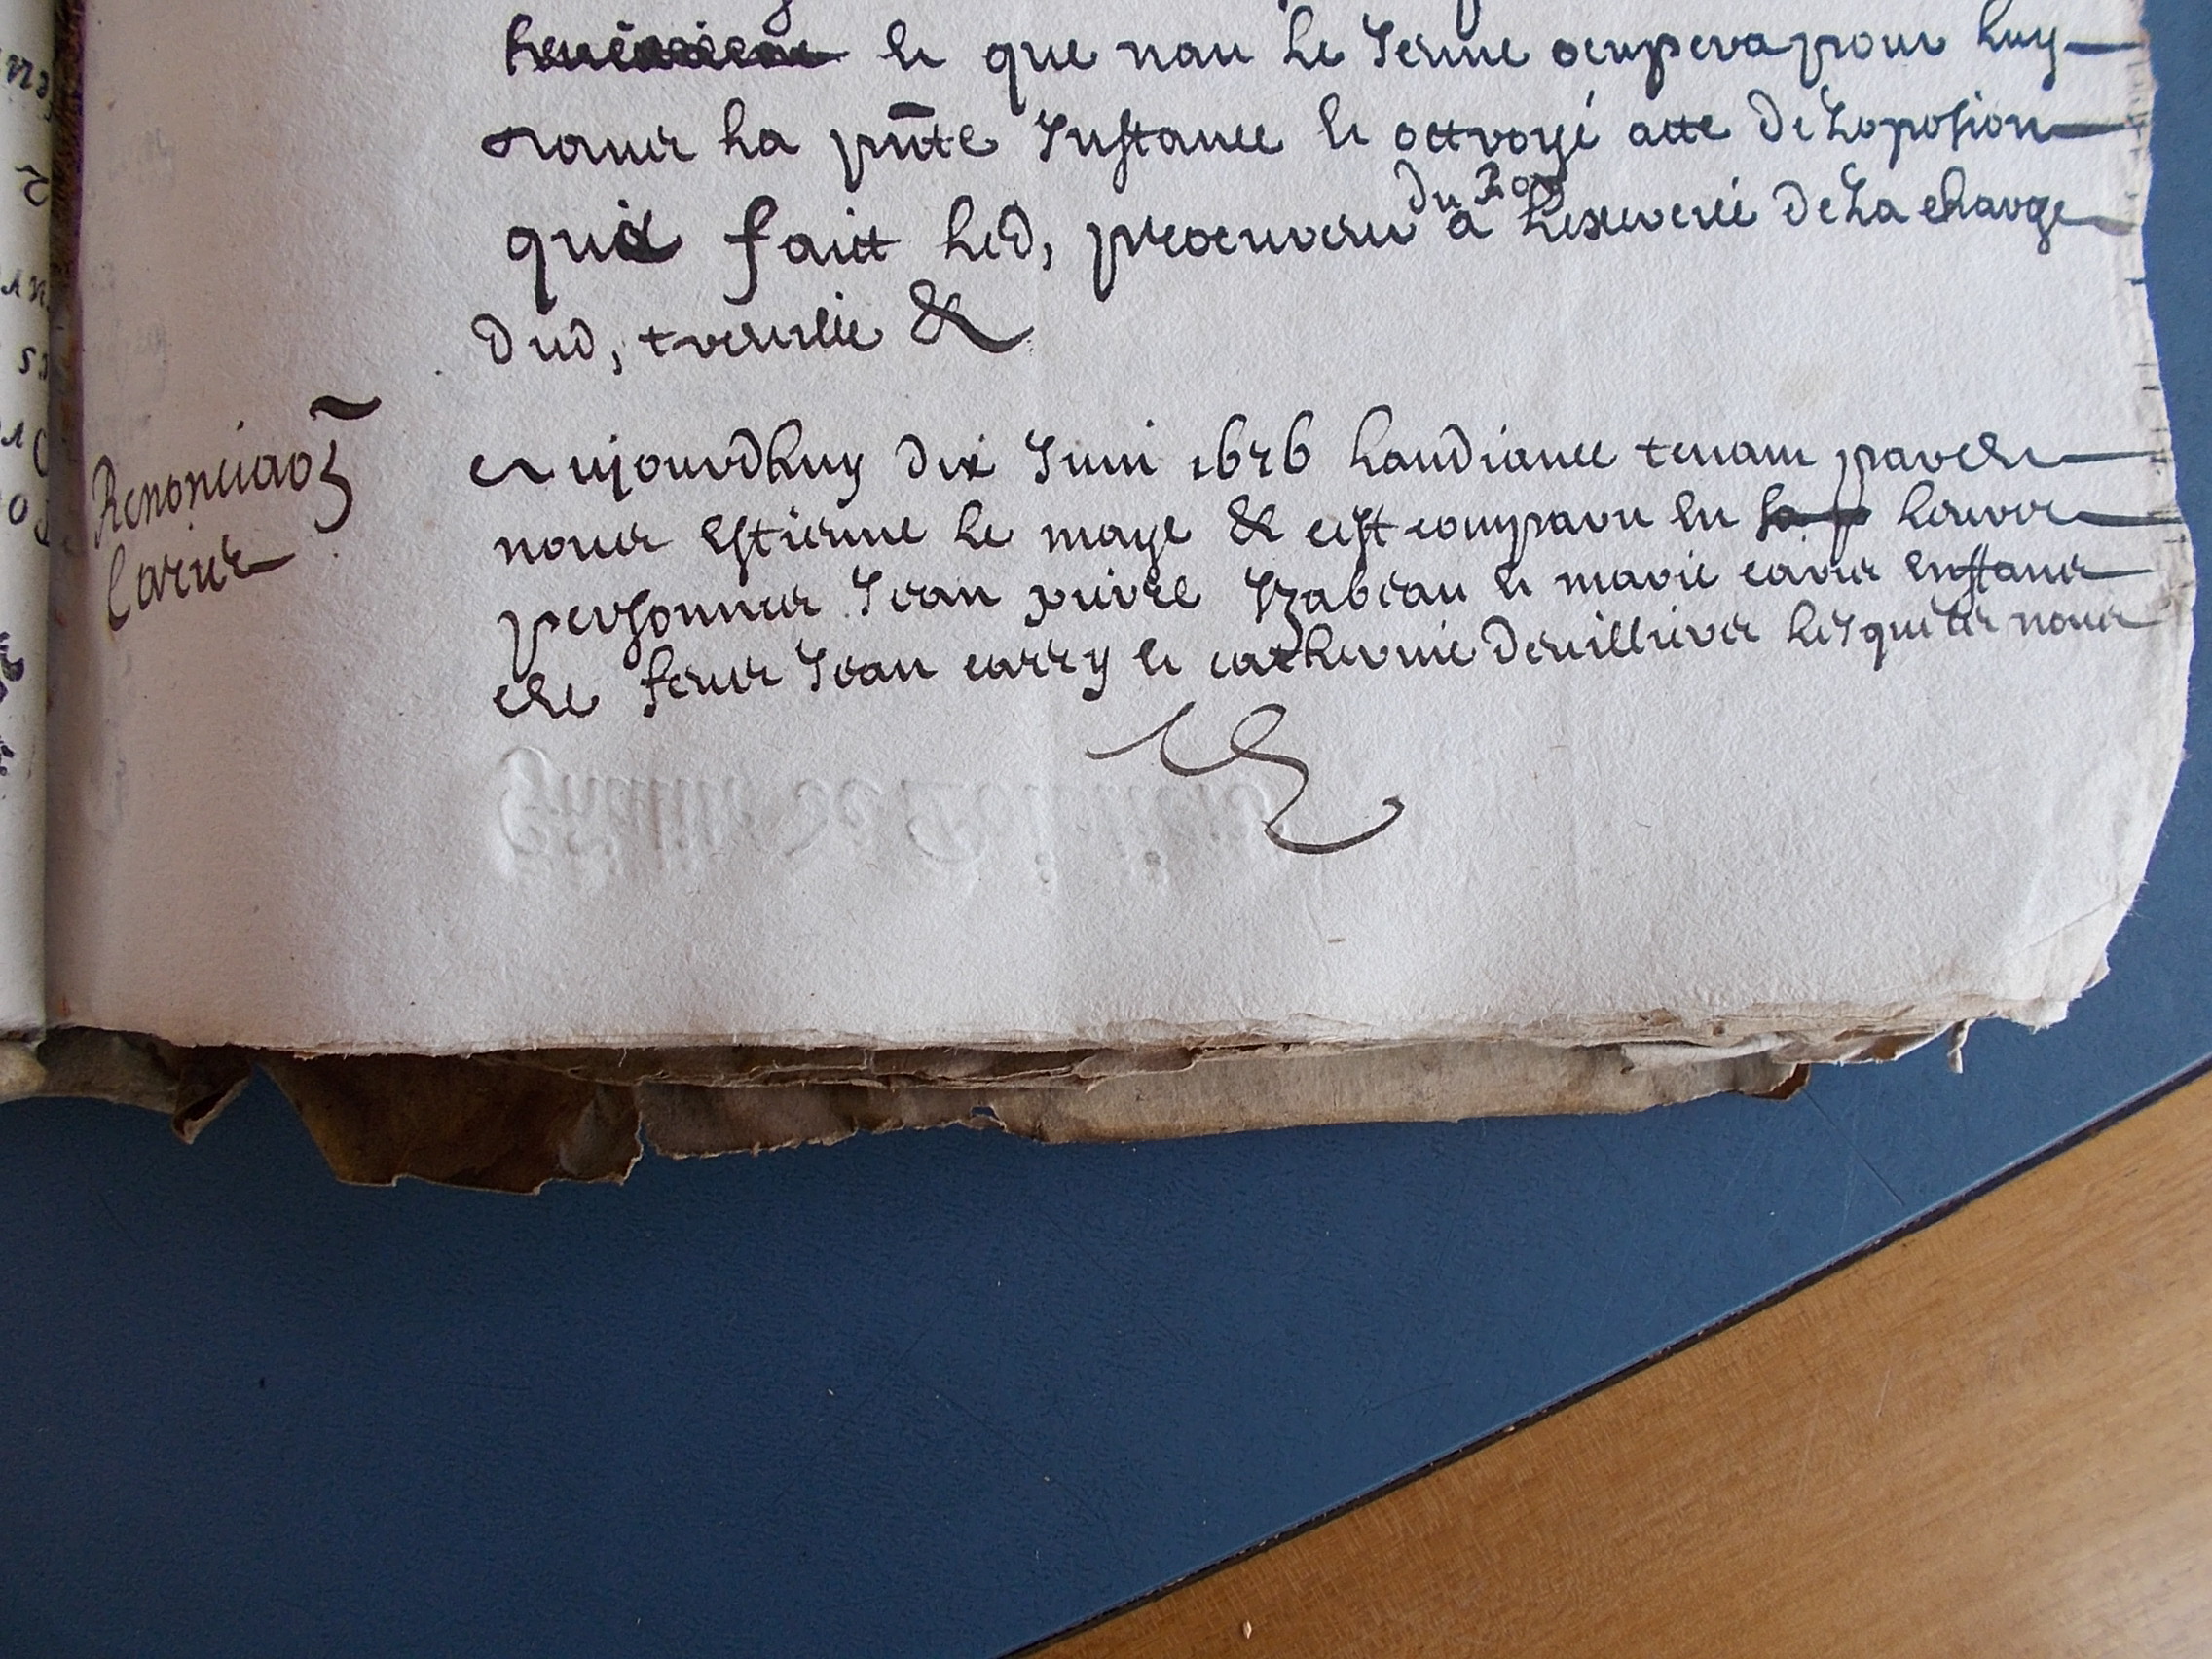 et que nau le Jeune ocupera pour luy
dans la pnte Instance et octroyé acte de Loposion
qui a faict led, procureur du Roy a Lexercice de La charge
dud, &
Renonciaōn
Carier
Aujourdhuy dix Juin 1676 Laudiance tenant pardev
nous Estienne le maye & cest comparu en leurs
personnes Jean pierre Izabeau et marie carier Enfans
de feus Jean carry et catherine devilliers lesquels nous